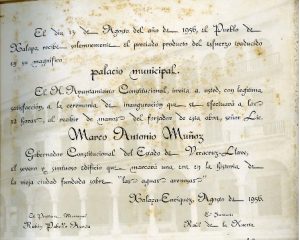 El día 13 de Agosto del año de 1956, el Pueblo de
Xalapa, recibe solemnemente el preciado producto del esfuerzo traducido
en su magnífico
palacio municipal.
El H. Ayuntamiento Constitucional, invita a usted, con legítima
satisfacción, a la ceremonia de inauguración que se efectuará a las
horas, al recibir de manos del forjador de esta obra, señor Lic.
Marco Antonio Muñoz
Gobernador Constitucional del Estado de Veracruz-Llave,
el severo y suntuoso edificio que marcará una era en la historia de
la vieja ciudad fundada sobre "las aguas arenosas"
Xalapa-Enríquez, Agosto de 1956.
Municipal
El Secretario
Rubén Pabello Acosta
Raúl de la Huerta